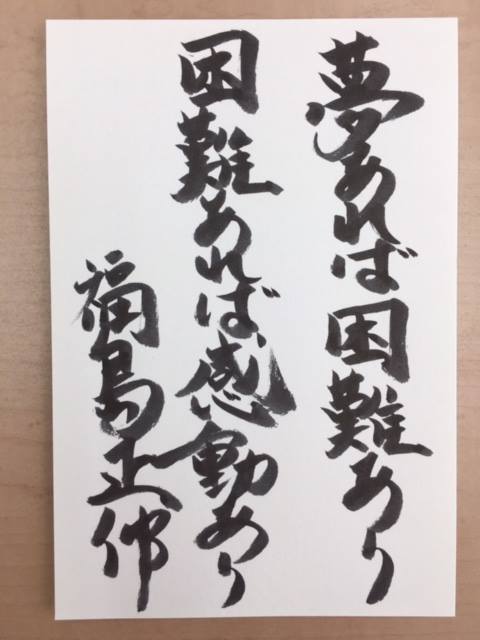 夢あれば困難あり
困難あれば感動あり
福島正伸